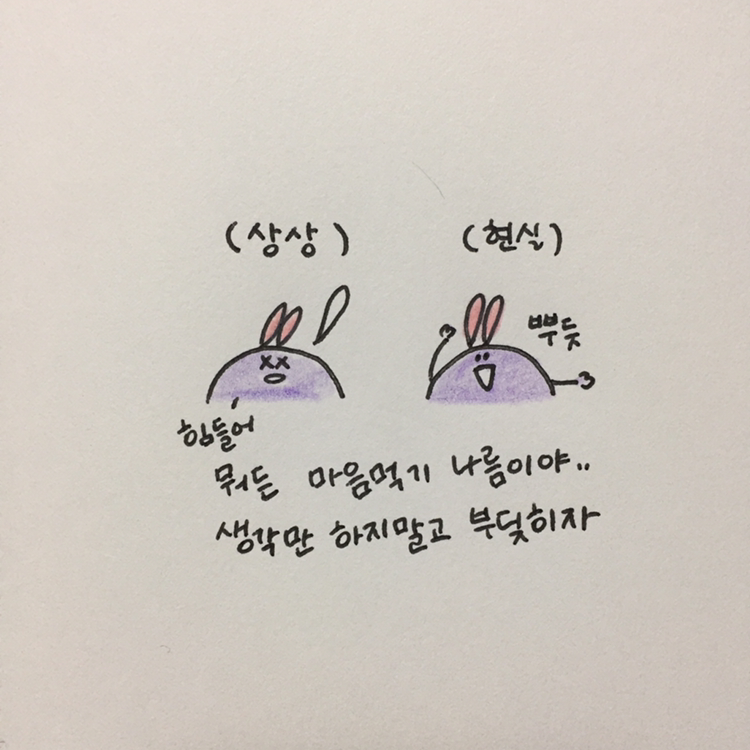 (상상) (현실)
뿌듯
힘들어
뭐든 마음먹기 나름이야..
생각만 하지말고 부딪히자